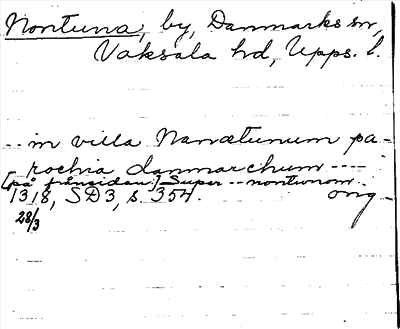 Nontuna, by, Danmarks sn,
Vaksala hd, Upps. l.
-- in villa Nanætunum pa-
rochia danmarchum ----
[på frånsidan:] Super -- nontunom --
1318, SD3, s. 354. orig -
28/3